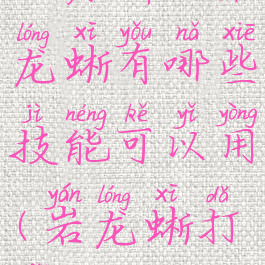 lóng xī yǒu nǎ xiē
龙蜥有哪些
jì néng kě yǐ yòng
技能可以用
yán lóng xī dǎ
(岩龙蜥打